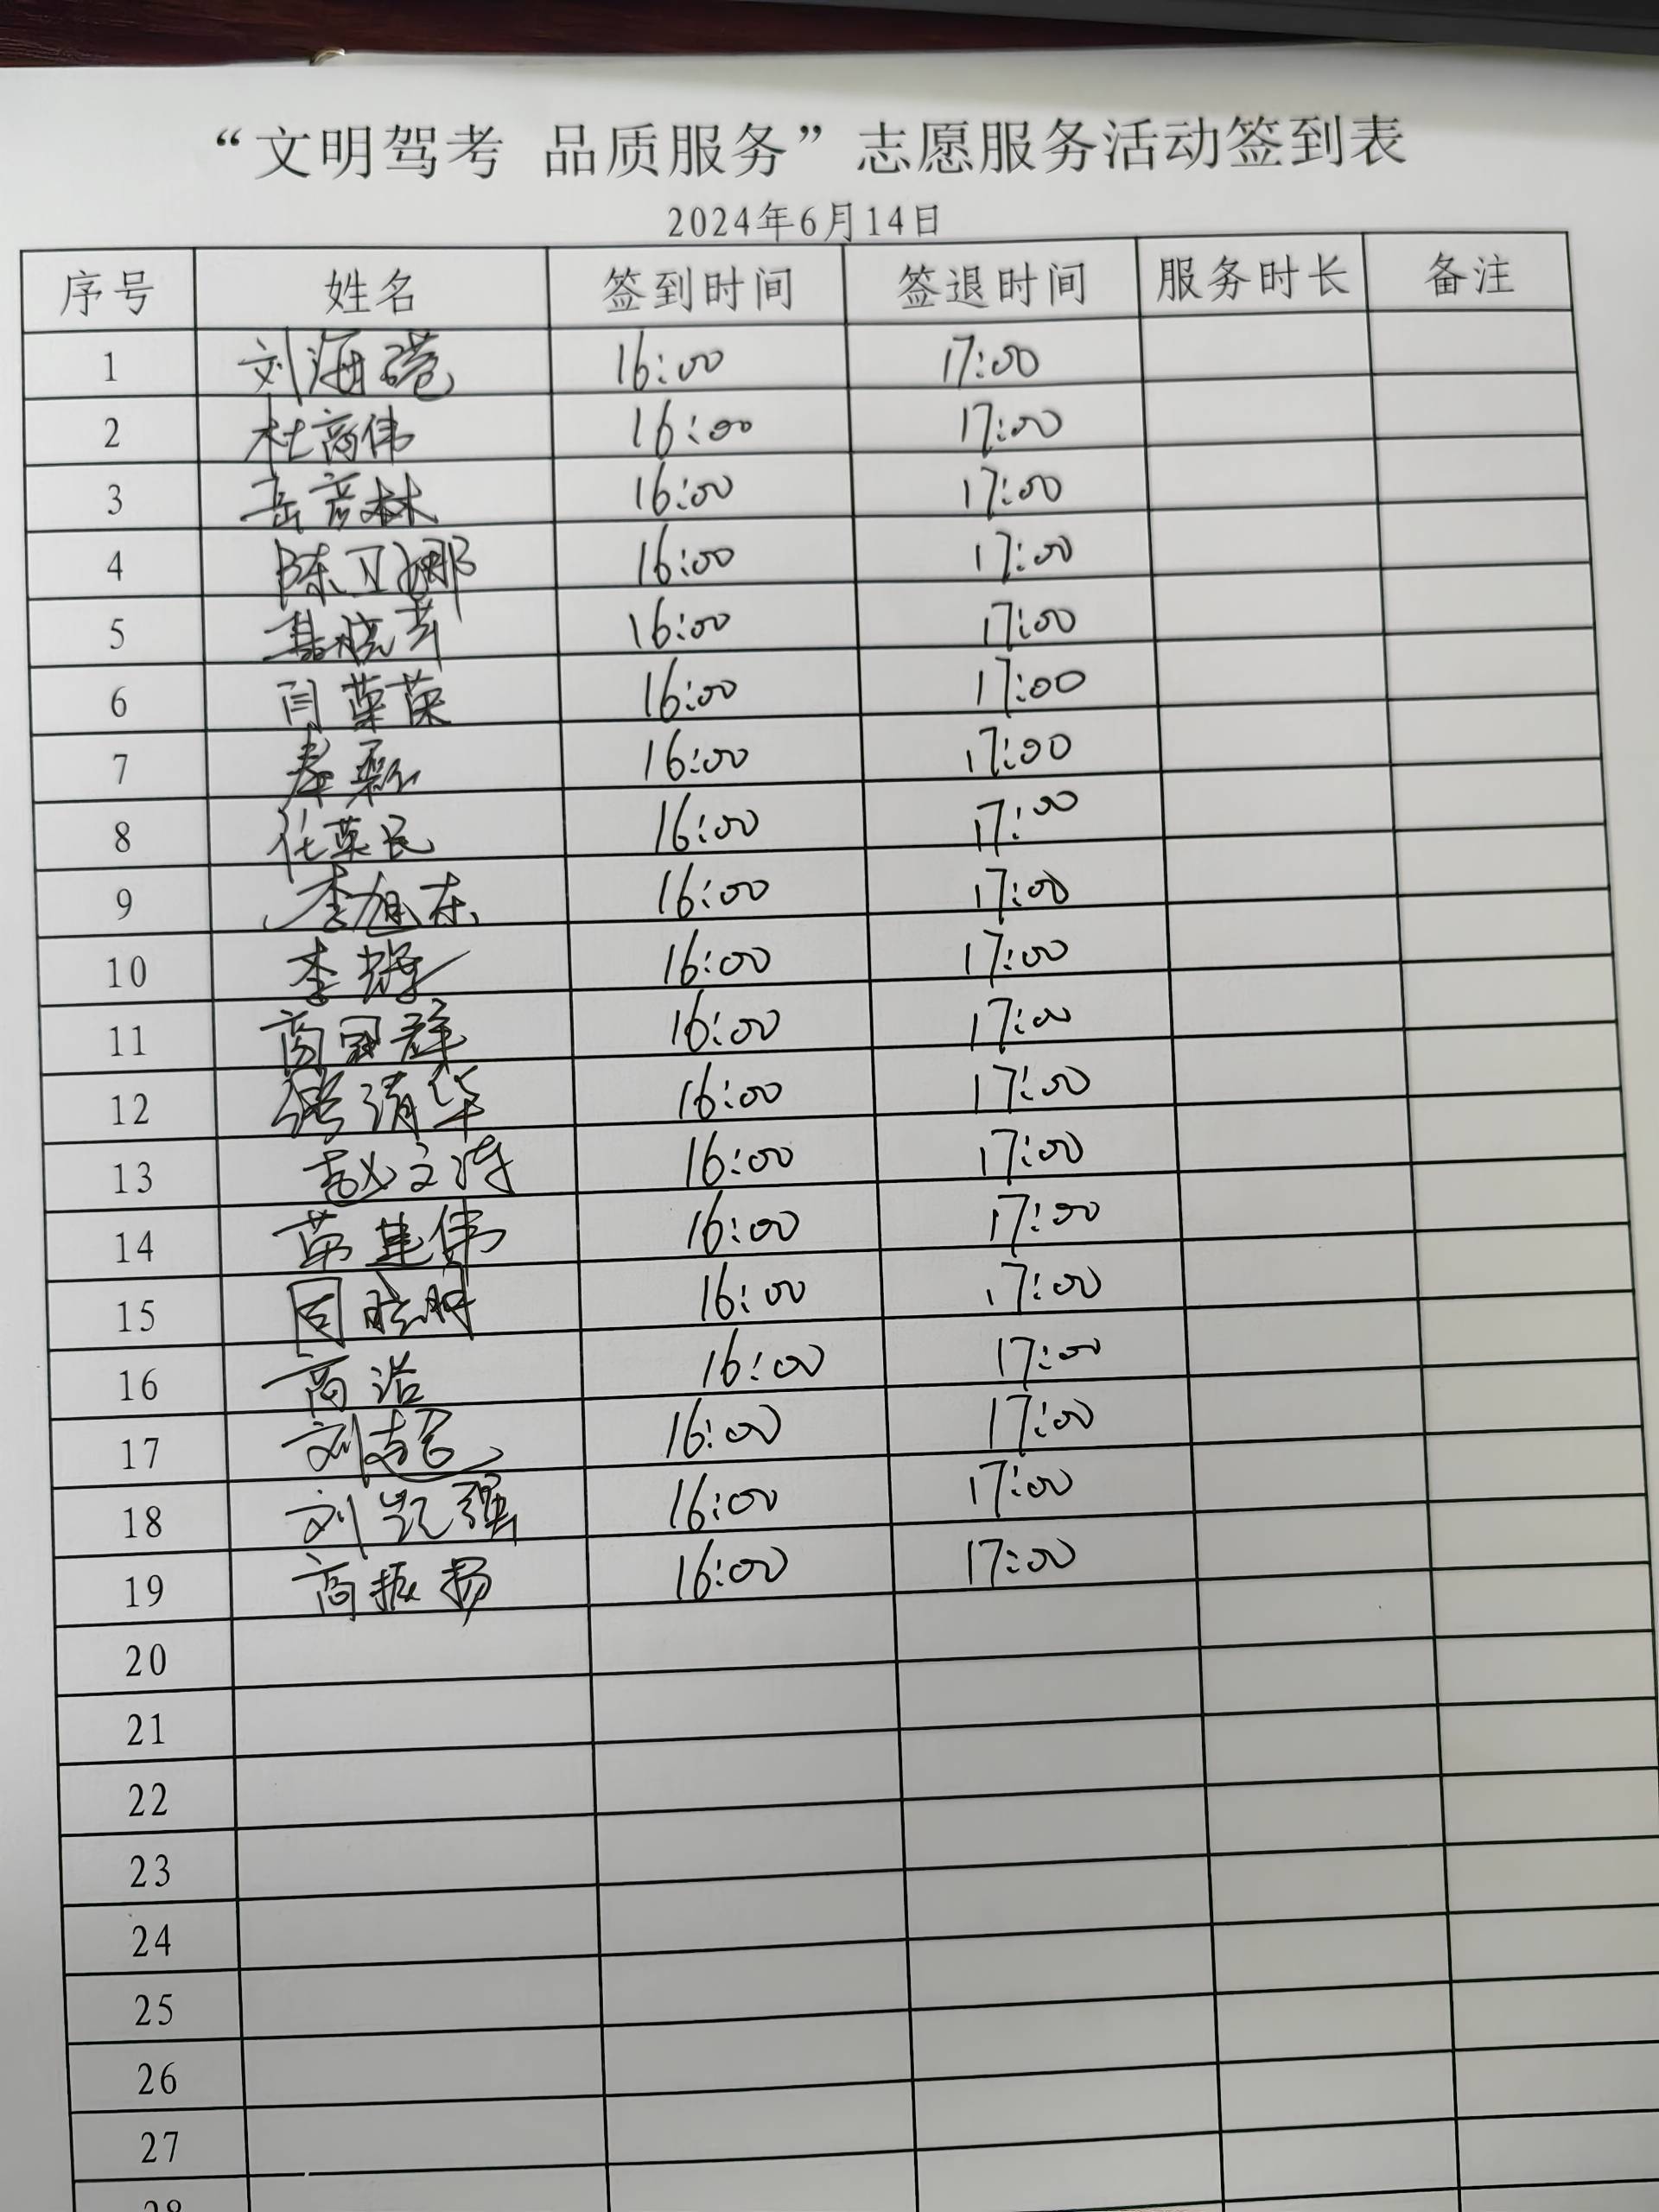 “文明驾考 品质服务”志愿服务活动签到表
2024年6月14日
序号 姓名 签到时间 签退时间 服务时长 备注
1 刘海 16:00 17:00
2 杜高伟 16:00 17:00
3 岳彦林 16:00 17:00
4 陈卫娜 16:00 17:00
5 16:00 17:00
6 闫 16:00 17:00
7 秦 16:00 17:00
8 任英民 16:00 17:00
9 李旭东 16:00 17:00
10 李辉 16:00 17:00
11 高国群 16:00 17:00
12 清华 16:00 17:00
13 赵文涛 16:00 17:00
14 苗建伟 16:00 17:00
15 周晓明 16:00 17:00
16 高浩 16:00 17:00
17 刘志 16:00 17:00
18 刘凯强 16:00 17:00
19 高振扬 16:00 17:00
20
21
22
23
24
25
26
27
28